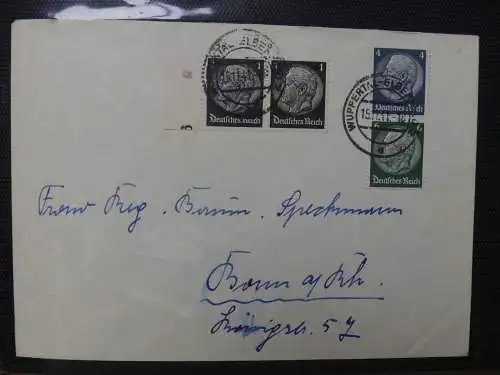 WUPPERTAL-ELBER
1 1 4
Deutsches Reich Deutsches Reich Deutsches Reich
6
Deutsches Reich
Frau Reg. Baum. Speckmann
Bonn a/Rh.
Königstr. 57